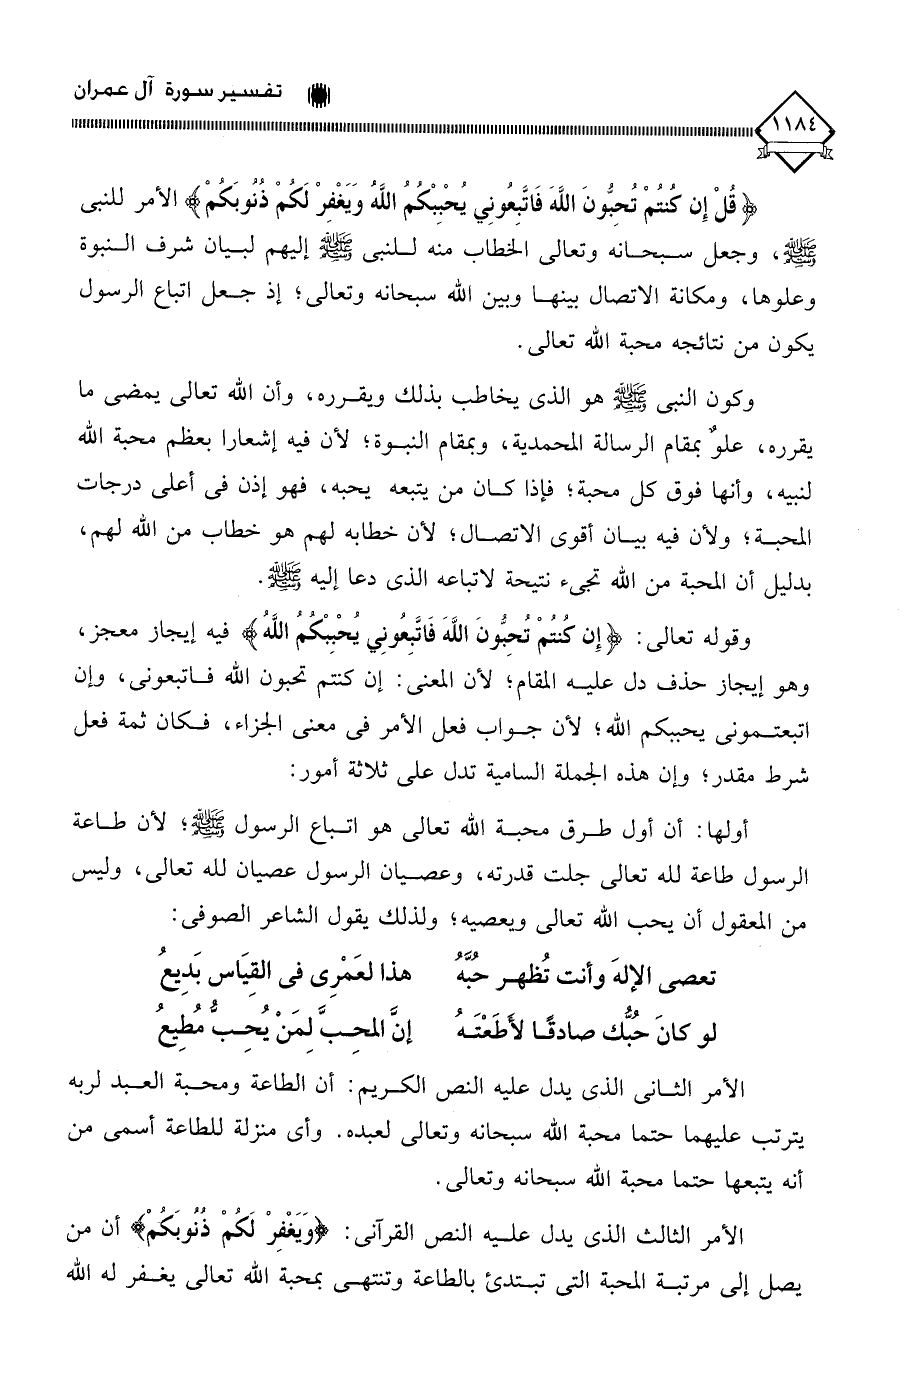 تفسير سورة آل عمران
١١٨٤
﴿قُلْ إِن كُنتُمْ تُحِبُّونَ اللَّهَ فَاتَّبِعُونِي يُحْبِبْكُمُ اللَّهُ وَيَغْفِرْ لَكُمْ ذُنُوبَكُمْ﴾ الأمر للنبى
ﷺ، وجعل سبحانه وتعالى الخطاب منه للنبى ﷺ إليهم لبيان شرف النبوة
وعلوها، ومكانة الاتصال بينها وبين الله سبحانه وتعالى؛ إذ جعل اتباع الرسول
يكون من نتائجه محبة الله تعالى.
وكون النبى ﷺ هو الذى يخاطب بذلك ويقرره، وأن الله تعالى يمضى ما
يقرره، علوٌ بمقام الرسالة المحمدية، وبمقام النبوة؛ لأن فيه إشعارا بعظم محبة الله
لنبيه، وأنها فوق كل محبة؛ فإذا كان من يتبعه يحبه، فهو إذن فى أعلى درجات
المحبة؛ ولأن فيه بيان أقوى الاتصال؛ لأن خطابه لهم هو خطاب من الله لهم،
بدليل أن المحبة من الله تجىء نتيحة لاتباعه الذى دعا إليه ﷺ.
وقوله تعالى: ﴿إِن كُنتُمْ تُحِبُّونَ اللَّهَ فَاتَّبِعُونِي يُحْبِبْكُمُ اللَّهُ﴾ فيه إيجاز معجز،
وهو إيجاز حذف دل عليه المقام؛ لأن المعنى: إن كنتم تحبون الله فاتبعونى، وإن
اتبعتمونى يحببكم الله؛ لأن جواب فعل الأمر فى معنى الجزاء، فكان ثمة فعل
شرط مقدر؛ وإن هذه الجملة السامية تدل على ثلاثة أمور:
أولها: أن أول طرق محبة الله تعالى هو اتباع الرسول ﷺ؛ لأن طاعة
الرسول طاعة لله تعالى جلت قدرته، وعصيان الرسول عصيان لله تعالى، وليس
من المعقول أن يحب الله تعالى ويعصيه؛ ولذلك يقول الشاعر الصوفى:
تعصى الإلهَ وأنت تُظهر حُبَّهُ هذا لعَمْرِى فى القِيَاس بَدِيعُ
لو كانَ حُبُّك صادقًا لأَطَعْتَهُ إنَّ المحِبَّ لِمَنْ يُحِبُّ مُطِيعُ
الأمر الثانى الذى يدل عليه النص الكريم: أن الطاعة ومحبة العبد لربه
يترتب عليهما حتما محبة الله سبحانه وتعالى لعبده. وأى منزلة للطاعة أسمى من
أنه يتبعها حتما محبة الله سبحانه وتعالى.
الأمر الثالث الذى يدل عليه النص القرآنى: ﴿وَيَغْفِرْ لَكُمْ ذُنُوبَكُمْ﴾ أن من
يصل إلى مرتبة المحبة التى تبتدئ بالطاعة وتنتهى بمحبة الله تعالى يغفر له الله